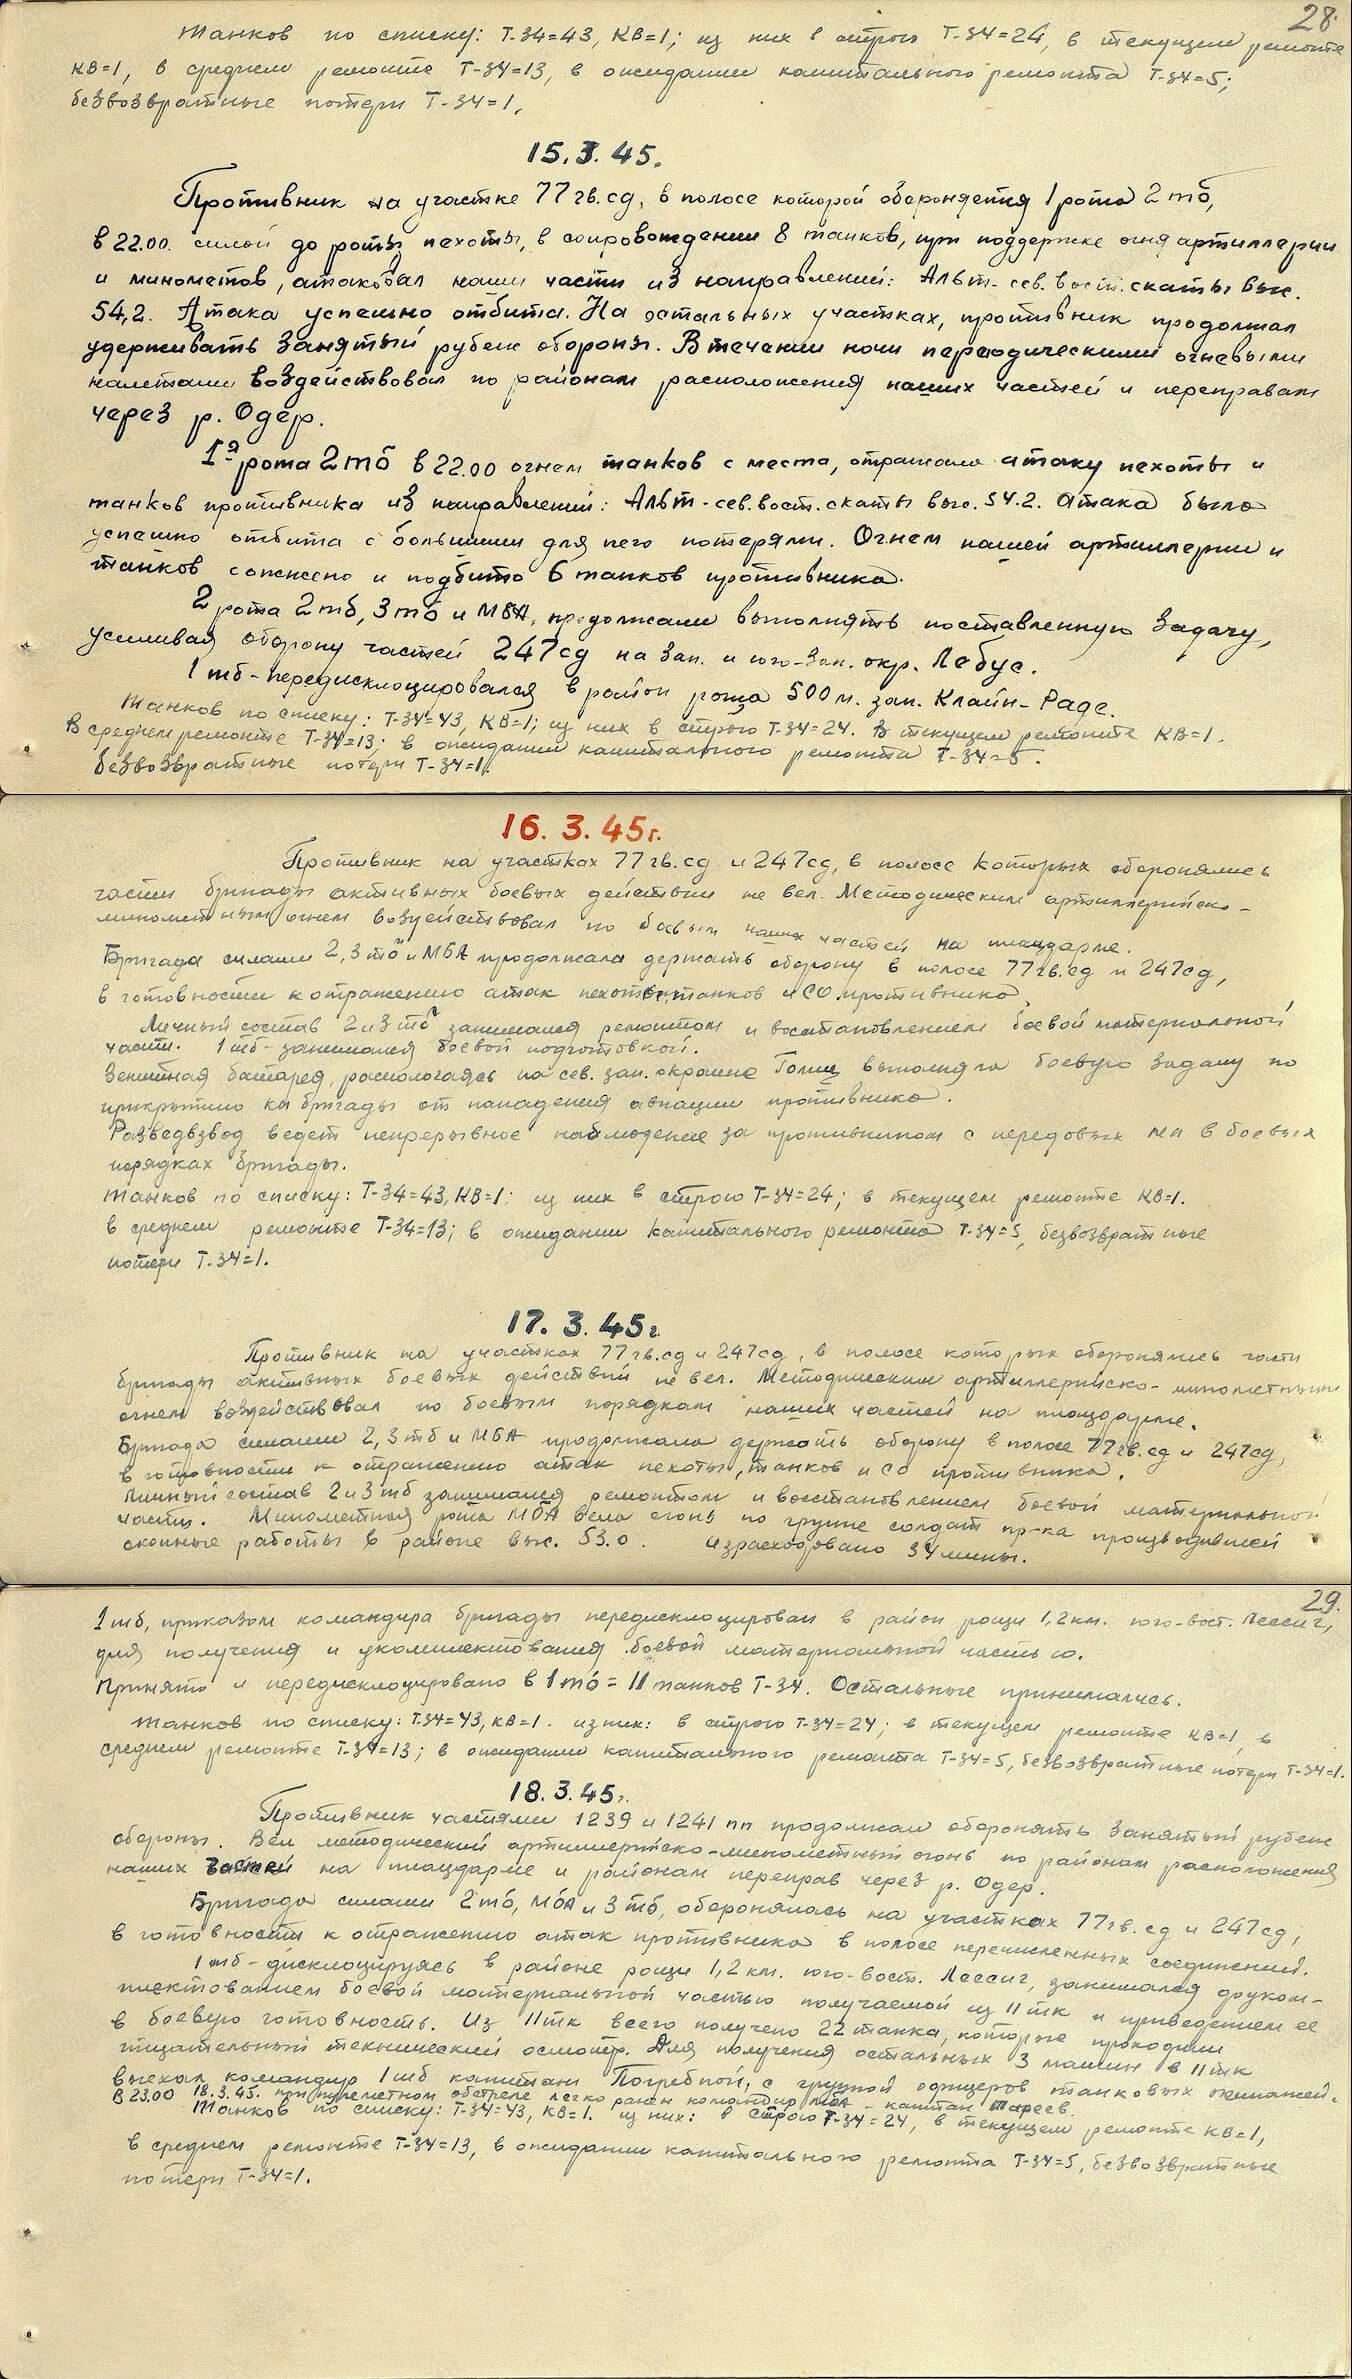 28.
Танков по списку: Т-34=43, КВ=1; из них в строю Т-34=24, в текущем ремонте
КВ=1, в среднем ремонте Т-34=13, в ожидании капитального ремонта Т-34=5;
безвозвратные потери Т-34=1.
15.3.45.
Противник на участке 77 гв.сд, в полосе которой обороняется 1 рота 2 тб,
в 22.00. силой до роты пехоты, в сопровождении 8 танков, при поддержке огня артиллерии
и минометов, атаковал наши части из направлений: Альт-сев.вост.скаты выс.
54,2. Атака успешно отбита. На остальных участках, противник продолжал
удерживать занятый рубеж обороны. В течении ночи периодическими огневыми
налетами воздействовал по районам расположения наших частей и переправам
через р. Одер.
1я рота 2 тб в 22.00 огнем танков с места, отражала атаку пехоты и
танков противника из направлений: Альт-сев.вост.скаты выс. 54.2. Атака была
успешно отбита с большими для него потерями. Огнем нашей артиллерии и
танков сожжено и подбито 6 танков противника.
2 рота 2 тб, 3 тб и МБА, продолжали выполнять поставленную задачу,
усиливая оборону частей 247 сд на зап. и юго-зап. окр. Лебус.
1 тб - передислоцировался в район роща 500 м. зап. Клайн-Раде.
Танков по списку: Т-34=43, КВ=1; из них в строю Т-34=24. В текущем ремонте КВ=1.
В среднем ремонте Т-34=13; в ожидании капитального ремонта Т-34=5.
Безвозвратные потери Т-34=1.
16. 3. 45г.
Противник на участках 77 гв.сд и 247 сд, в полосе которых оборонялись
части бригады активных боевых действий не вел. Методическим артиллерийско-
минометным огнем воздействовал по боевым наших частей на плацдарме.
Бригада силами 2,3 тб и МБА продолжала держать оборону в полосе 77 гв.сд и 247 сд,
в готовности к отражению атак пехоты, танков и СО противника.
Личный состав 2 и 3 тб занимался ремонтом и восстановлением боевой материальной
части. 1 тб - занимался боевой подготовкой.
Зенитная батарея, расположась на сев. зап. окраине Голиц выполняла боевую задачу по
прикрытию кп бригады от нападения авиации противника.
Разведвзвод ведет непрерывное наблюдение за противником с передовых нп в боевых
порядках бригады.
Танков по списку: Т-34=43, КВ=1; из них в строю Т-34=24; в текущем ремонте КВ=1.
в среднем ремонте Т-34=13; в ожидании капитального ремонта Т-34=5, безвозвратные
потери Т-34=1.
17. 3. 45г.
Противник на участках 77 гв.сд и 247 сд, в полосе которых оборонялись части
бригады активных боевых действий не вел. Методическим артиллерийско-минометным
огнем воздействовал по боевым порядкам наших частей на плацдарме.
Бригада силами 2,3 тб и МБА продолжала держать оборону в полосе 77 гв.сд и 247 сд,
в готовности к отражению атак пехоты, танков и СО противника.
Личный состав 2 и 3 тб занимался ремонтом и восстановлением боевой материальной
части. Минометная рота МБА вела огонь по группе солдат пр-ка производившей
окопные работы в районе выс. 53.0. Израсходовано 34 мины.
29.
1 тб, приказом командира бригады передислоцирован в район рощи 1,2 км. юго-вост. Лессиг,
для получения и укомплектования боевой материальной частью.
Принято и передислоцировано в 1 тб = 11 танков Т-34. Остальные принимались.
Танков по списку: Т-34=43, КВ=1. из них: в строю Т-34=24; в текущем ремонте КВ=1, в
среднем ремонте Т-34=13; в ожидании капитального ремонта Т-34=5, безвозвратные потери Т-34=1.
18.3.45г.
Противник частями 1239 и 1241 пп продолжал оборонять занятый рубеж
обороны. Вел методический артиллерийско-минометный огонь по районам расположения
наших частей на плацдарме и районам переправ через р. Одер.
Бригада силами 2 тб, МБА и 3 тб, оборонялась на участках 77 гв. сд и 247 сд,
в готовности к отражению атак противника в полосе перечисленных соединений.
1 тб - дислоцируясь в районе рощи 1,2 км. юго-вост. Лессиг, занимался доуком-
плектованием боевой материальной частью получаемой из 11 тк и приведением ее
в боевую готовность. Из 11 тк всего получено 22 танка, которые проходили
тщательный технический осмотр. Для получения остальных 3 машин в 11 тк
выехал командир 1 тб капитан Погребной, с группой офицеров танковых экипажей.
В 23.00 18.3.45. при пулеметном обстреле легко ранен командир МБА - капитан Тареев.
Танков по списку: Т-34=43, КВ=1. из них: в строю Т-34=24, в текущем ремонте КВ=1,
в среднем ремонте Т-34=13, в ожидании капитального ремонта Т-34=5, безвозвратные
потери Т-34=1.